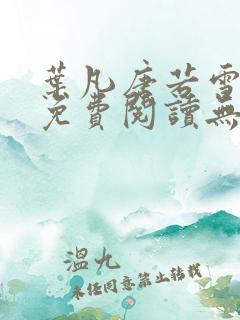 葉凡唐若雪
免費閱讀無
溫九
未經同意禁止轉載